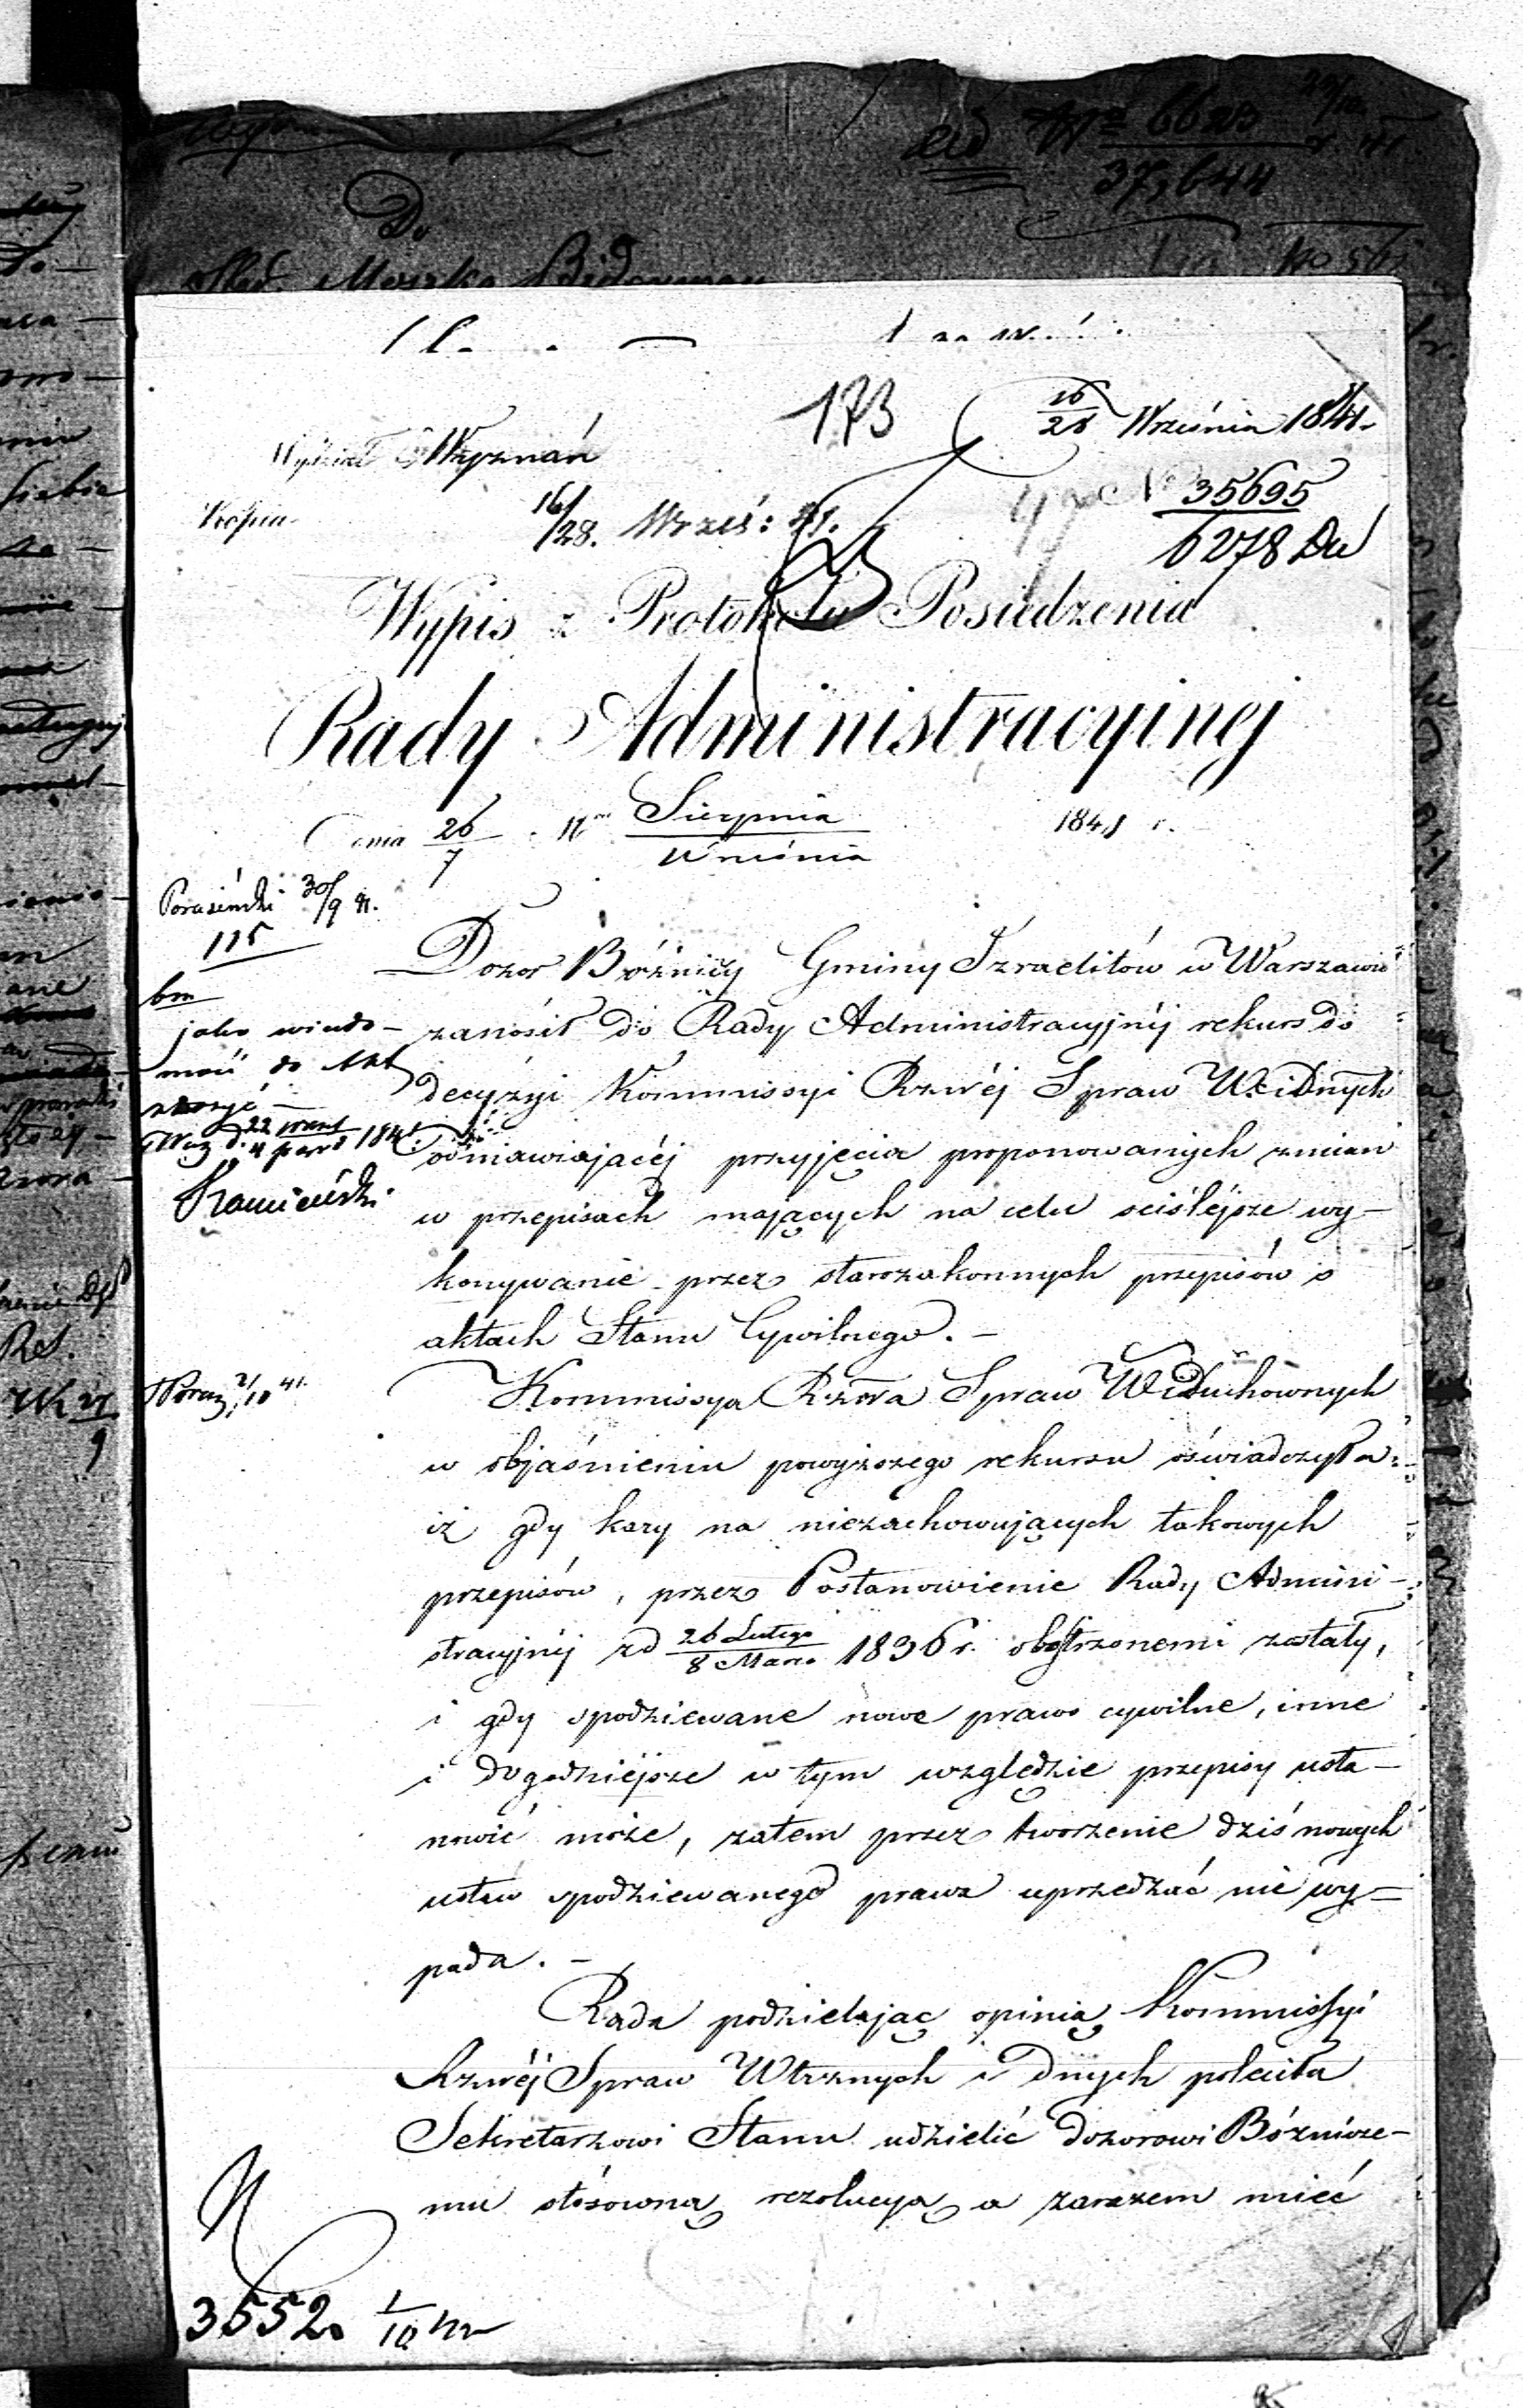 ad No 6623
37,644
Do
Moszka Biderman
173
16/28 Września 1841.
Wydział Wyznań
No 35695
6278 Du
Kopia
16/28. Wrześ: 41.
Wypis z Protokołu Posiedzenia
Rady Administracyinej
Dnia 26/7 Sierpnia/Września 1841 r.
30/9 41.
115
bm
jako wiado-
mość do Akt
złożyć
Kamieński
2/10 41.
Dozor Bóźnicy Gminy Izraelitów w Warszawie
zanosił do Rady Administracyjnéj rekurs do
decyzyi Kommissyi Rzwéj Spraw W. i Dnych
odmawiającéj przyjęcia proponowanych zmian
w przepisach mających na celu sciślejsze wy-
konywanie przez starozakonnych przepisów o
aktach Stanu Cywilnego. -
Kommissya Rzowa Spraw W i Duchownych
w objaśnieniu powyższego rekursu oświadczyła:
iż gdy kary na niezachowujących takowych
przepisów, przez Postanowienie Rady Admini-
stracyjnéj zd 26 Lutego/8 Marca 1836 r. obostrzonemi zostały,
i gdy spodziewane nowe prawo cywilne, inne
i dogodniéjsze w tym względzie przepisy usta-
nowić może, zatem przez tworzenie dziś nowych
ustaw spodziewanego prawa uprzedzać nie wy-
pada. -
Rada podzielając opinią Kommissyi
Rzwéj Spraw Wtrznych i Dnych poleciła
Sekretarzowi Stanu udzielić Dozorowi Bóźnicze-
mu stósowną rezolucyą a zarazem mieć
3552. 1/10